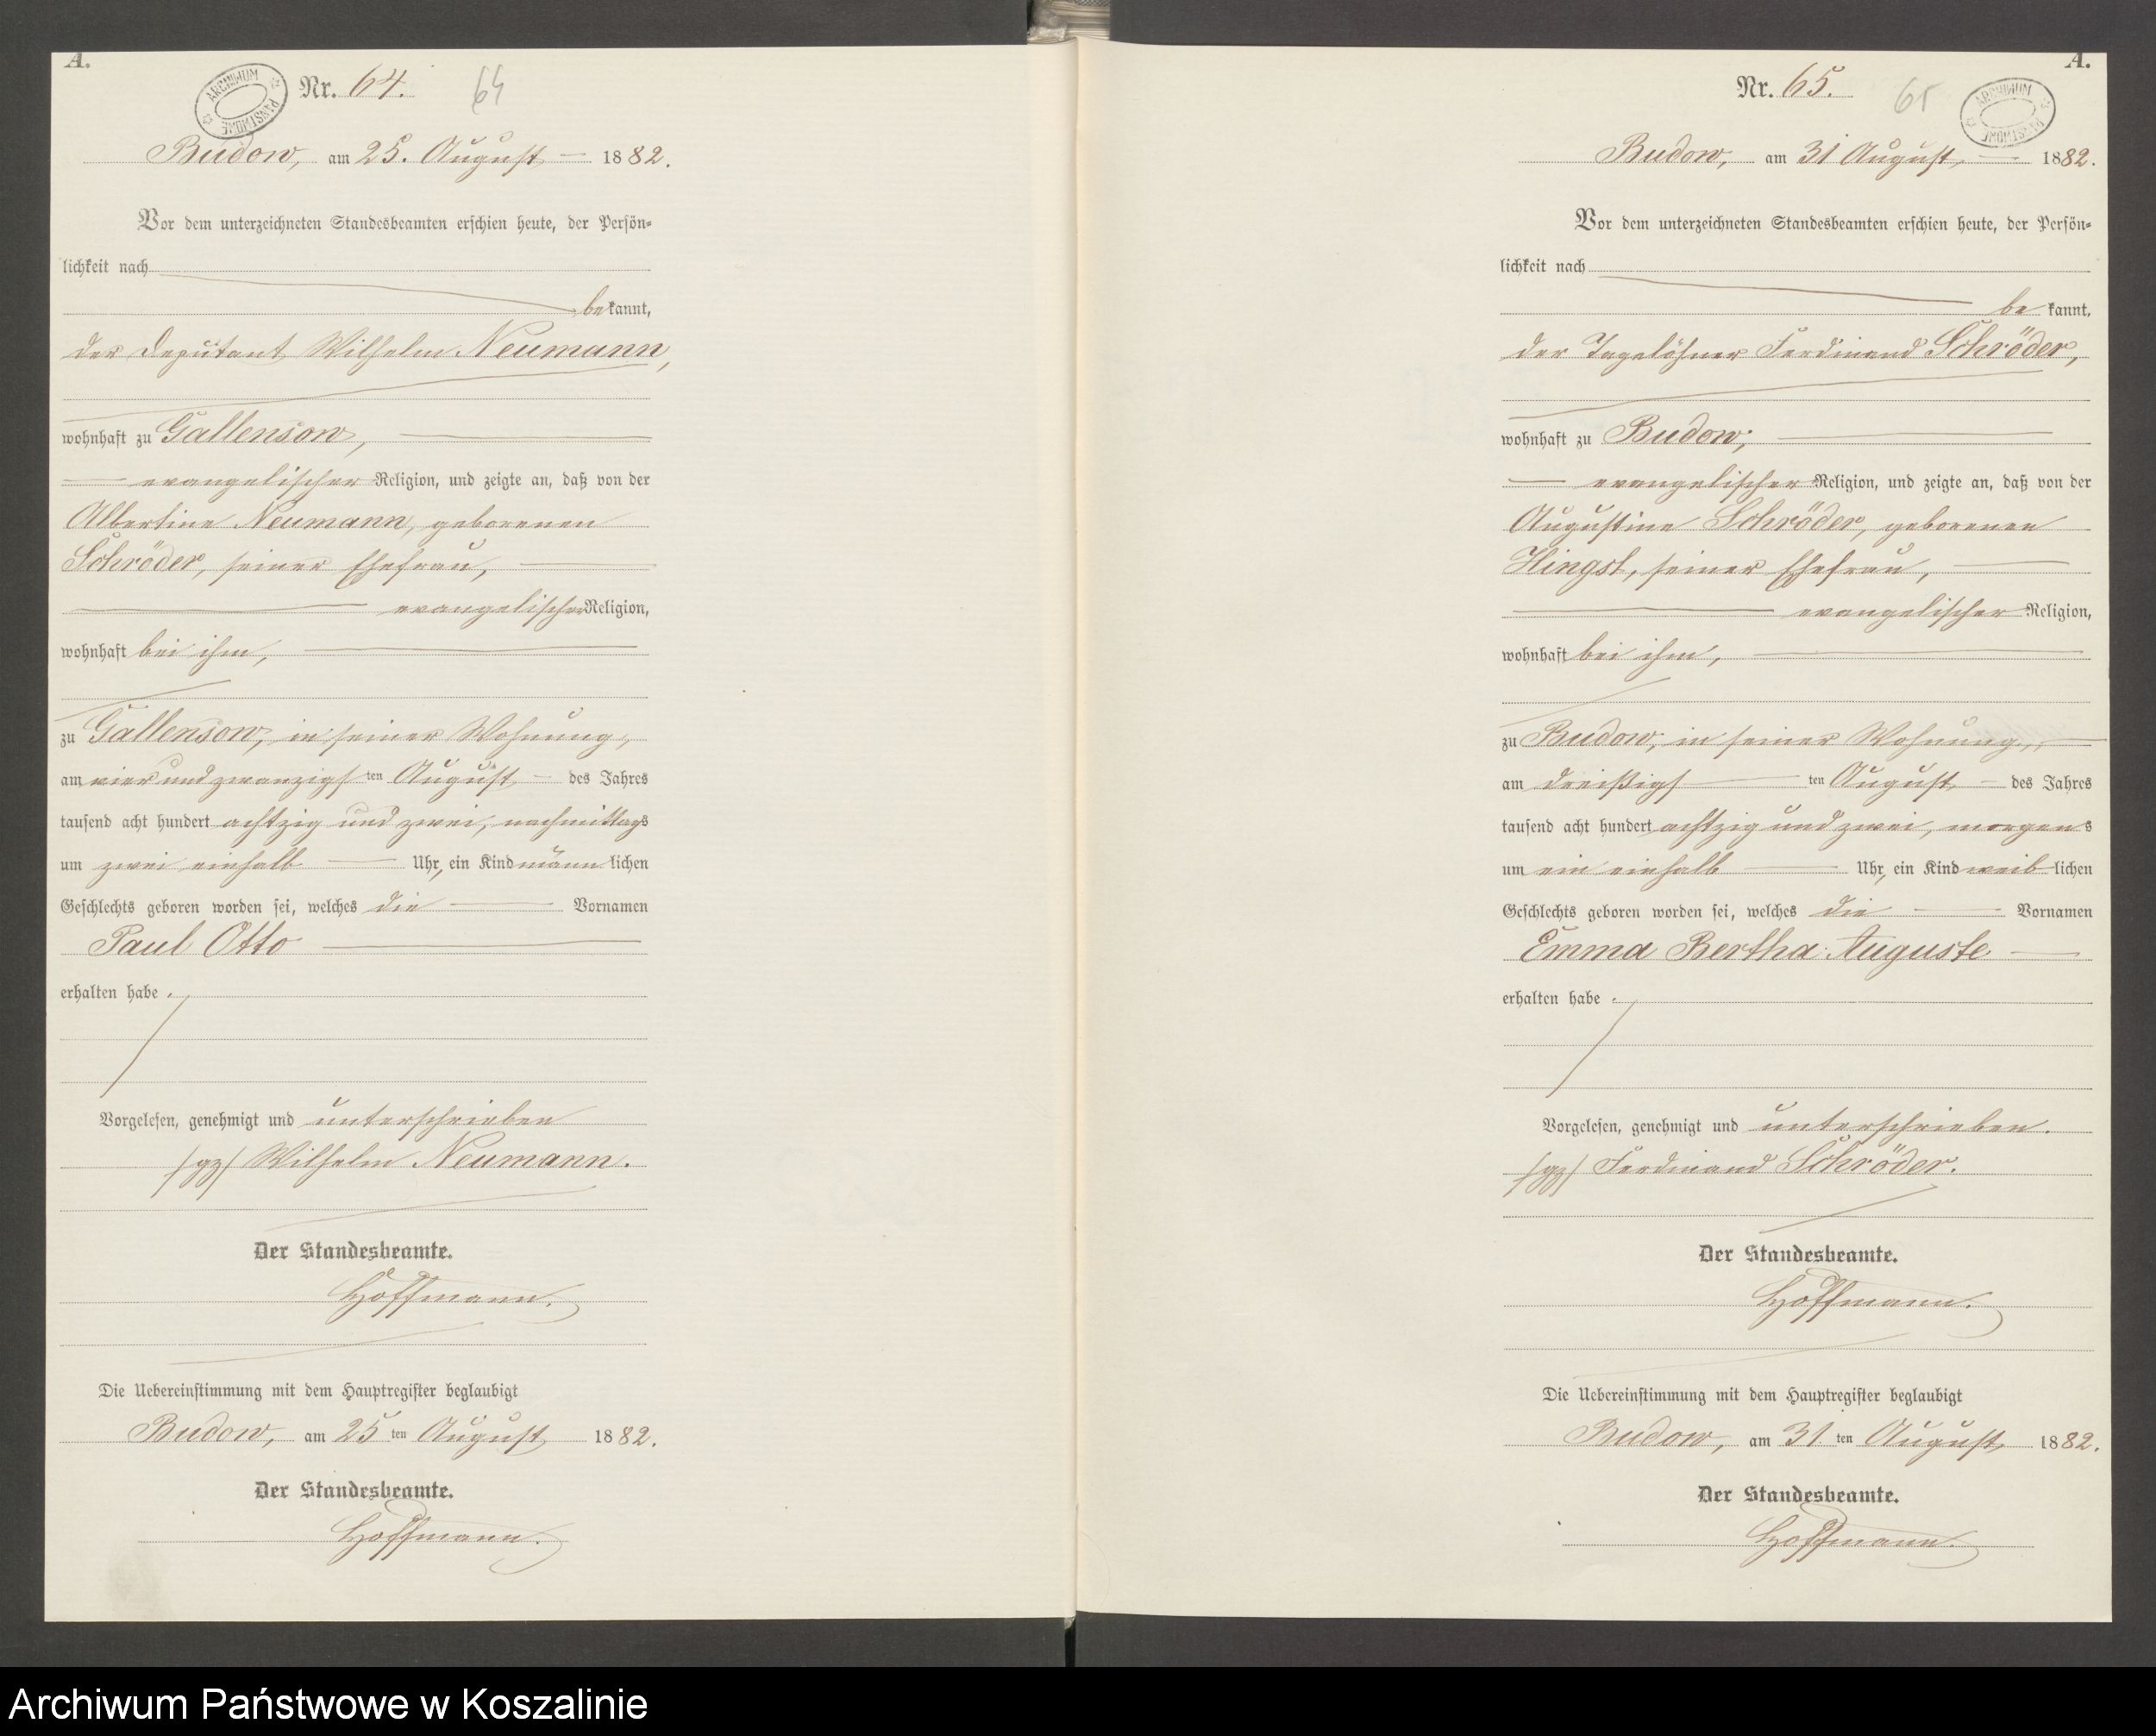 A.
ARCHIWUM PAŃSTWOWE
Nr. 64. 64
Budow, am 25. August 1882.
Vor dem unterzeichneten Standesbeamten erschien heute, der Persön-
lichkeit nach
bekannt,
der Deputant Wilhelm Neumann,
wohnhaft zu Gallensow,
evangelischer Religion, und zeigte an, daß von der
Albertine Neumann, geborenen
Schröder, seiner Ehefrau,
evangelischer Religion,
wohnhaft bei ihm,
zu Gallensow, in seiner Wohnung,
am vier und zwanzigsten August des Jahres
tausend acht hundert achtzig und zwei, nachmittags
um zwei einhalb Uhr, ein Kind männlichen
Geschlechts geboren worden sei, welches die Vornamen
Paul Otto
erhalten habe.
Vorgelesen, genehmigt und unterschrieben
/gz/ Wilhelm Neumann.
Der Standesbeamte.
Hoffmann.
Die Uebereinstimmung mit dem Hauptregister beglaubigt
Budow, am 25ten August 1882.
Der Standesbeamte.
Hoffmann.
A.
Nr. 65. 65
ARCHIWUM PAŃSTWOWE
Budow, am 31 August 1882.
Vor dem unterzeichneten Standesbeamten erschien heute, der Persön-
lichkeit nach
bekannt,
der Tagelöhner Ferdinand Schröder,
wohnhaft zu Budow,
evangelischer Religion, und zeigte an, daß von der
Augustine Schröder, geborenen
Hingst, seiner Ehefrau,
evangelischer Religion,
wohnhaft bei ihm,
zu Budow, in seiner Wohnung,
am dreißigsten August des Jahres
tausend acht hundert achtzig und zwei, morgens
um ein einhalb Uhr, ein Kind weiblichen
Geschlechts geboren worden sei, welches die Vornamen
Emma Bertha Auguste
erhalten habe.
Vorgelesen, genehmigt und unterschrieben.
/gz/ Ferdinand Schröder.
Der Standesbeamte.
Hoffmann.
Die Uebereinstimmung mit dem Hauptregister beglaubigt
Budow, am 31ten August 1882.
Der Standesbeamte.
Hoffmann.
Archiwum Państwowe w Koszalinie